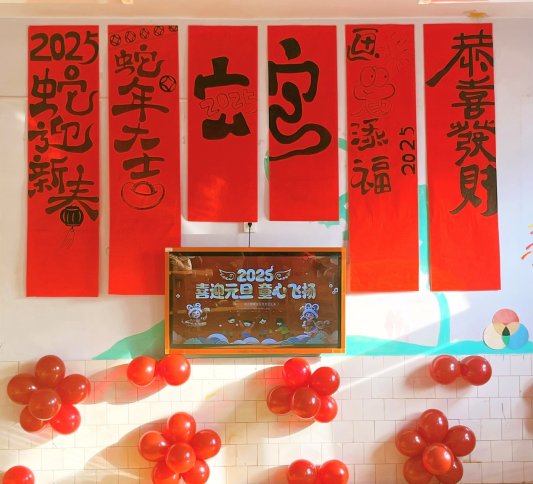 2025
蛇迎新春
蛇年大吉
2025
画
添福
2025
恭喜發財
2025
喜迎元旦 童心飞扬